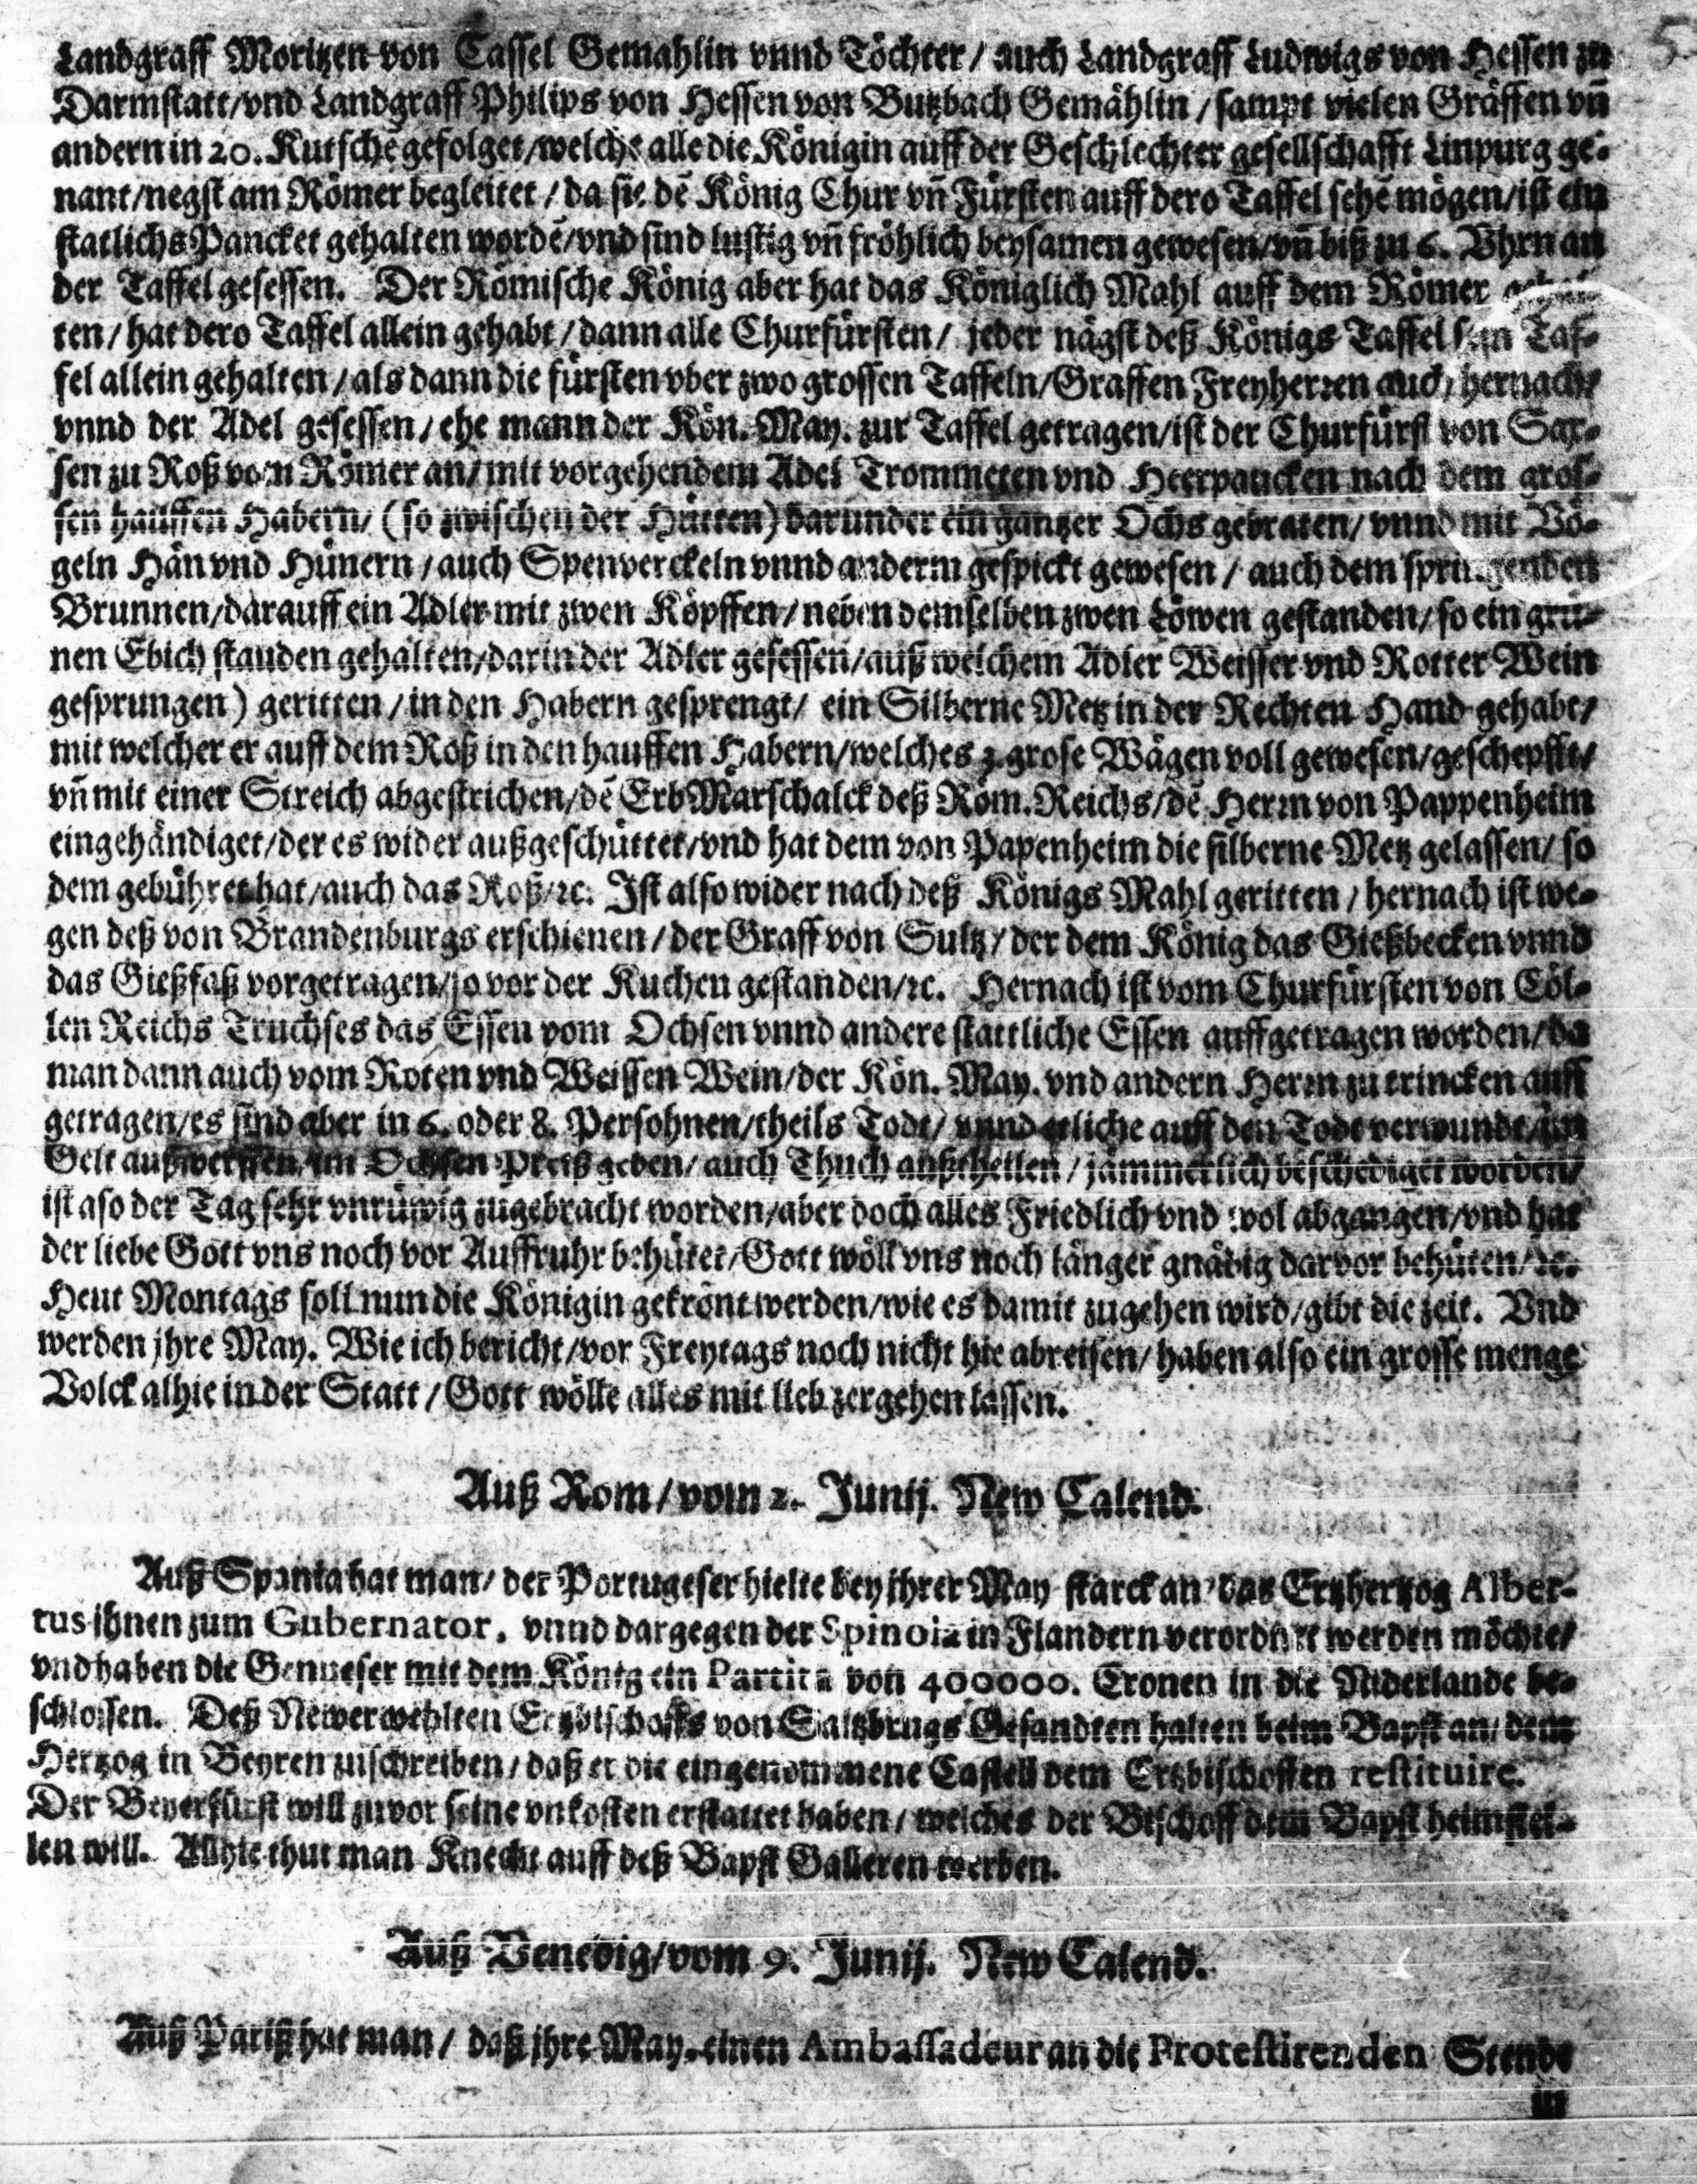 5
Landgraff Moritzen von Cassel Gemahlin vnnd Töchter / auch Landgraff Ludwigs von Hessen zu
Darmstatt/vnd Landgraff Philips von Hessen von Butzbach Gemählin / sampt vielen Gräffen vñ
andern in 20. Kutschē gefolget/welche alle die Königin auff der Geschlechter gesellschafft Linpurg ge-
nant/negst am Römer begleitet / da sie dē König Chur vñ Fürsten auff dero Taffel sehē mögen/ist ein
statlichs Pancket gehalten wordē/vnd sind lustig vñ fröhlich beysamen gewesen/vñ biß zu 6. Vhrn an
der Taffel gesessen. Der Römische König aber hat das Königlich Mahl auff dem Römer
ten / hat dero Taffel allein gehabt / dann alle Churfürsten / jeder nägst deß Königs Taffel sein Taf-
fel allein gehalten / als dann die fürsten vber zwo grossen Taffeln/Graffen Freyherren auch hernach/
vnnd der Adel gesessen / ehe mann der Kön. May. zur Taffel getragen/ist der Churfürst von Sax-
sen zu Roß vom Römer an/mit vorgehendem Adel Trommeten vnd Heerpaucken nach dem gros-
sen hauffen Habern/ (so zwischen der Hütten) darunder ein gantzer Ochs gebraten/ vnnd mit Vö-
geln Hän vnd Hünern / auch Spenverckeln vnnd anderm gespickt gewesen / auch dem springenden
Brunnen/darauff ein Adler mit zwen Köpffen / neben demselben zwen Löwen gestanden/ so ein grü-
nen Ebich stauden gehalten/darin der Adler gesessen/auß welchem Adler Weisser vnd Rotter Wein
gesprungen) geritten / in den Habern gesprengt/ ein Silberne Metz in der Rechten Hand gehabt/
mit welcher er auff dem Roß in den hauffen Habern/welches 3. grose Wägen voll gewesen/geschepfft/
vñ mit einer Streich abgestrichen/dē ErbMarschalck deß Röm. Reichs/dē Herrn von Pappenheim
eingehändiget/der es wider außgeschüttet/vnd hat dem von Papenheim die silberne Metz gelassen/ so
dem gebühret hat/auch das Roß/ꝛc. Ist also wider nach deß Königs Mahl geritten / hernach ist we-
gen deß von Brandenburgs erschienen / der Graff von Sultz / der dem König das Gießbecken vnnd
das Gießfaß vorgetragen/so vor der Kuchen gestanden/ꝛc. Hernach ist vom Churfürsten von Cöl-
len Reichs Truchses das Essen vom Ochsen vnnd andere stattliche Essen auffgetragen worden/da
man dann auch vom Roten vnd Weissen Wein/der Kön. May. vnd andern Herrn zu trincken auff
getragen/es sind aber in 6. oder 8. Persohnen/theils Todt/ vnnd etliche auff den Todt verwundt/im
Gelt außwerffen/im Ochsen Preiß geben/ auch Thuch außtheilen / jämmerlich beschediget worden/
ist aso der Tag sehr vnrüwig zugebracht worden/aber doch alles Friedlich vnd wol abgangen/vnd hat
der liebe Gott vns noch vor Auffruhr behütet/Gott wöll vns noch länger gnädig darvor behüten/ꝛc.
Heut Montags soll nun die Königin gekrönt werden/wie es damit zugehen wird/gibt die zeit. Vnd
werden jhre May. Wie ich bericht/vor Freytags noch nicht hie abreisen/ haben also ein grosse menge
Volck alhie in der Statt / Gott wölle alles mit lieb zergehen lassen.
Auß Rom / vom 2. Junij. New Calend.
Auß Spania hat man/ der Portugeser hielte bey jhrer May starck an/ das Ertzhertzog Alber-
tus ihnen zum Gubernator, vnnd dargegen der Spinola in Flandern verordnet werden möchte/
vnd haben die Genueser mit dem König ein Partita von 400000. Cronen in die Niderlande be-
schlossen. Deß Newerwehlten Ertzbischoffs von Saltzbrugs Gesandten halten beim Bapst an/ dem
Hertzog in Beyren zuschreiben / daß er die eingenommene Castell dem Ertzbischoffen restituire.
Der Beyerfürst will zuvor seine vnkosten erstattet haben / welches der Bischoff dem Bapst heimstel-
len will. Allhie thut man Knecht auff deß Bapst Galleren werben.
Auß Venedig/vom 9. Junij. New Calend.
Auß Pariß hat man / daß jhre May. einen Ambassadeur an die Protestirenden Stende
in